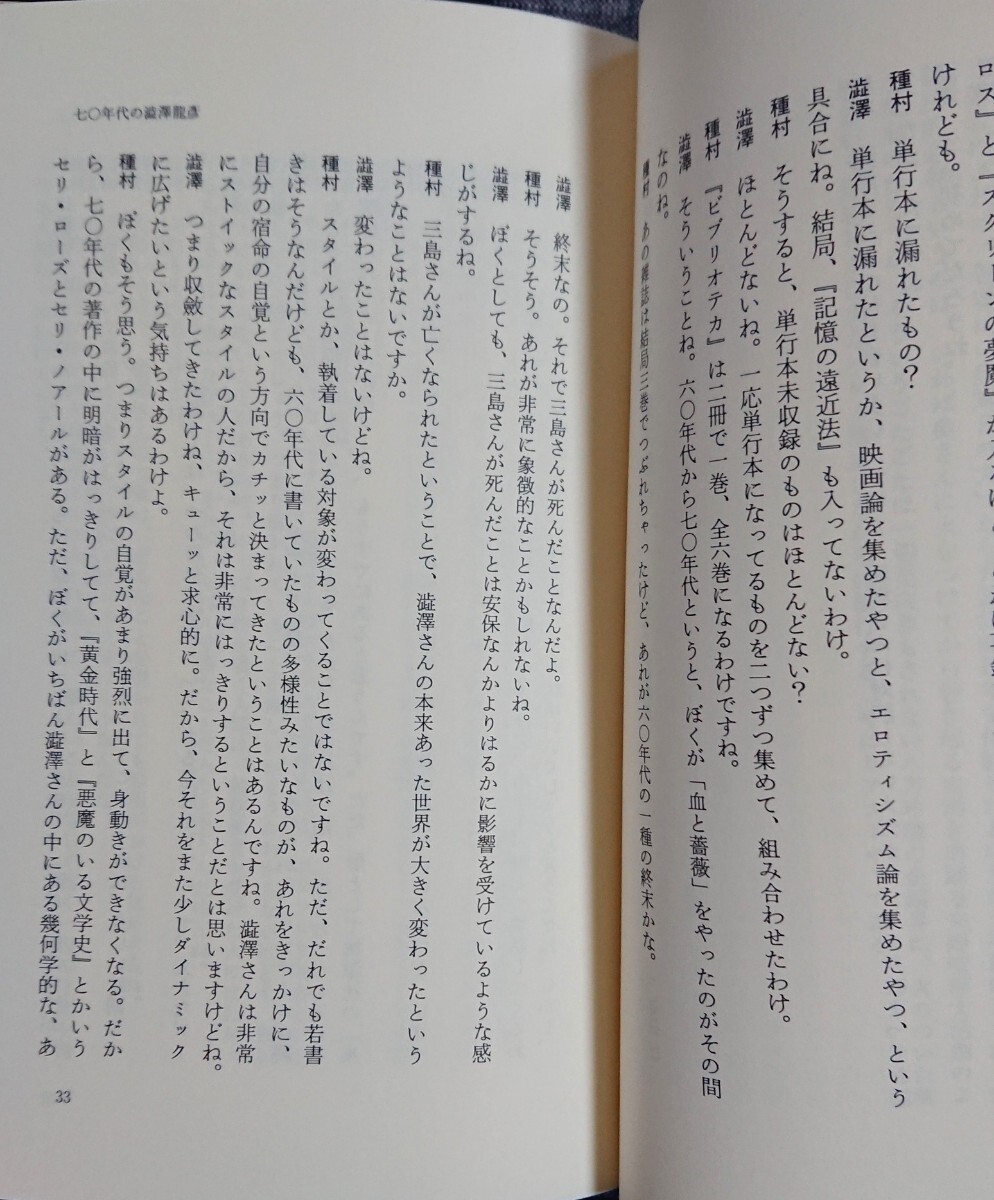 ロス』と『スクリーンの夢魔』が
けれども。
種村　単行本に漏れたもの？
澁澤　単行本に漏れたというか、映画論を集めたやつと、エロティシズム論を集めたやつ、という
具合にね。結局、『記憶の遠近法』も入ってないわけ。
種村　そうすると、単行本未収録のものはほとんどない？
澁澤　ほとんどないね。一応単行本になってるものを二つずつ集めて、組み合わせたわけ。
種村　『ビブリオテカ』は二冊で一巻、全六巻になるわけですね。
澁澤　そういうことね。六〇年代から七〇年代というと、ぼくが「血と薔薇」をやったのがその間
なのね。
種村　あの雑誌は結局三巻でつぶれちゃったけど、あれが六〇年代の一種の終末かな。
七〇年代の澁澤龍彥
澁澤　終末なの。それで三島さんが死んだことなんだよ。
種村　そうそう。あれが非常に象徴的なことかもしれないね。
澁澤　ぼくとしても、三島さんが死んだことは安保なんかよりはるかに影響を受けているような感
じがするね。
種村　三島さんが亡くなられたということで、澁澤さんの本来あった世界が大きく変わったという
ようなことはないですか。
澁澤　変わったことはないけどね。
種村　スタイルとか、執着している対象が変わってくることではないですね。ただ、だれでも若書
きはそうなんだけども、六〇年代に書いていたものの多様性みたいなものが、あれをきっかけに、
自分の宿命の自覚という方向でカチッと決まってきたということはあるんですね。澁澤さんは非常
にストイックなスタイルの人だから、それは非常にはっきりするということだとは思いますけどね。
澁澤　つまり収斂してきたわけね、キューッと求心的に。だから、今それをまた少しダイナミック
に広げたいという気持ちはあるわけよ。
種村　ぼくもそう思う。つまりスタイルの自覚があまり強烈に出て、身動きができなくなる。だか
ら、七〇年代の著作の中に明暗がはっきりしてて、『黄金時代』と『悪魔のいる文学史』とかいう
セリ・ローズとセリ・ノアールがある。ただ、ぼくがいちばん澁澤さんの中にある幾何学的な、あ
33